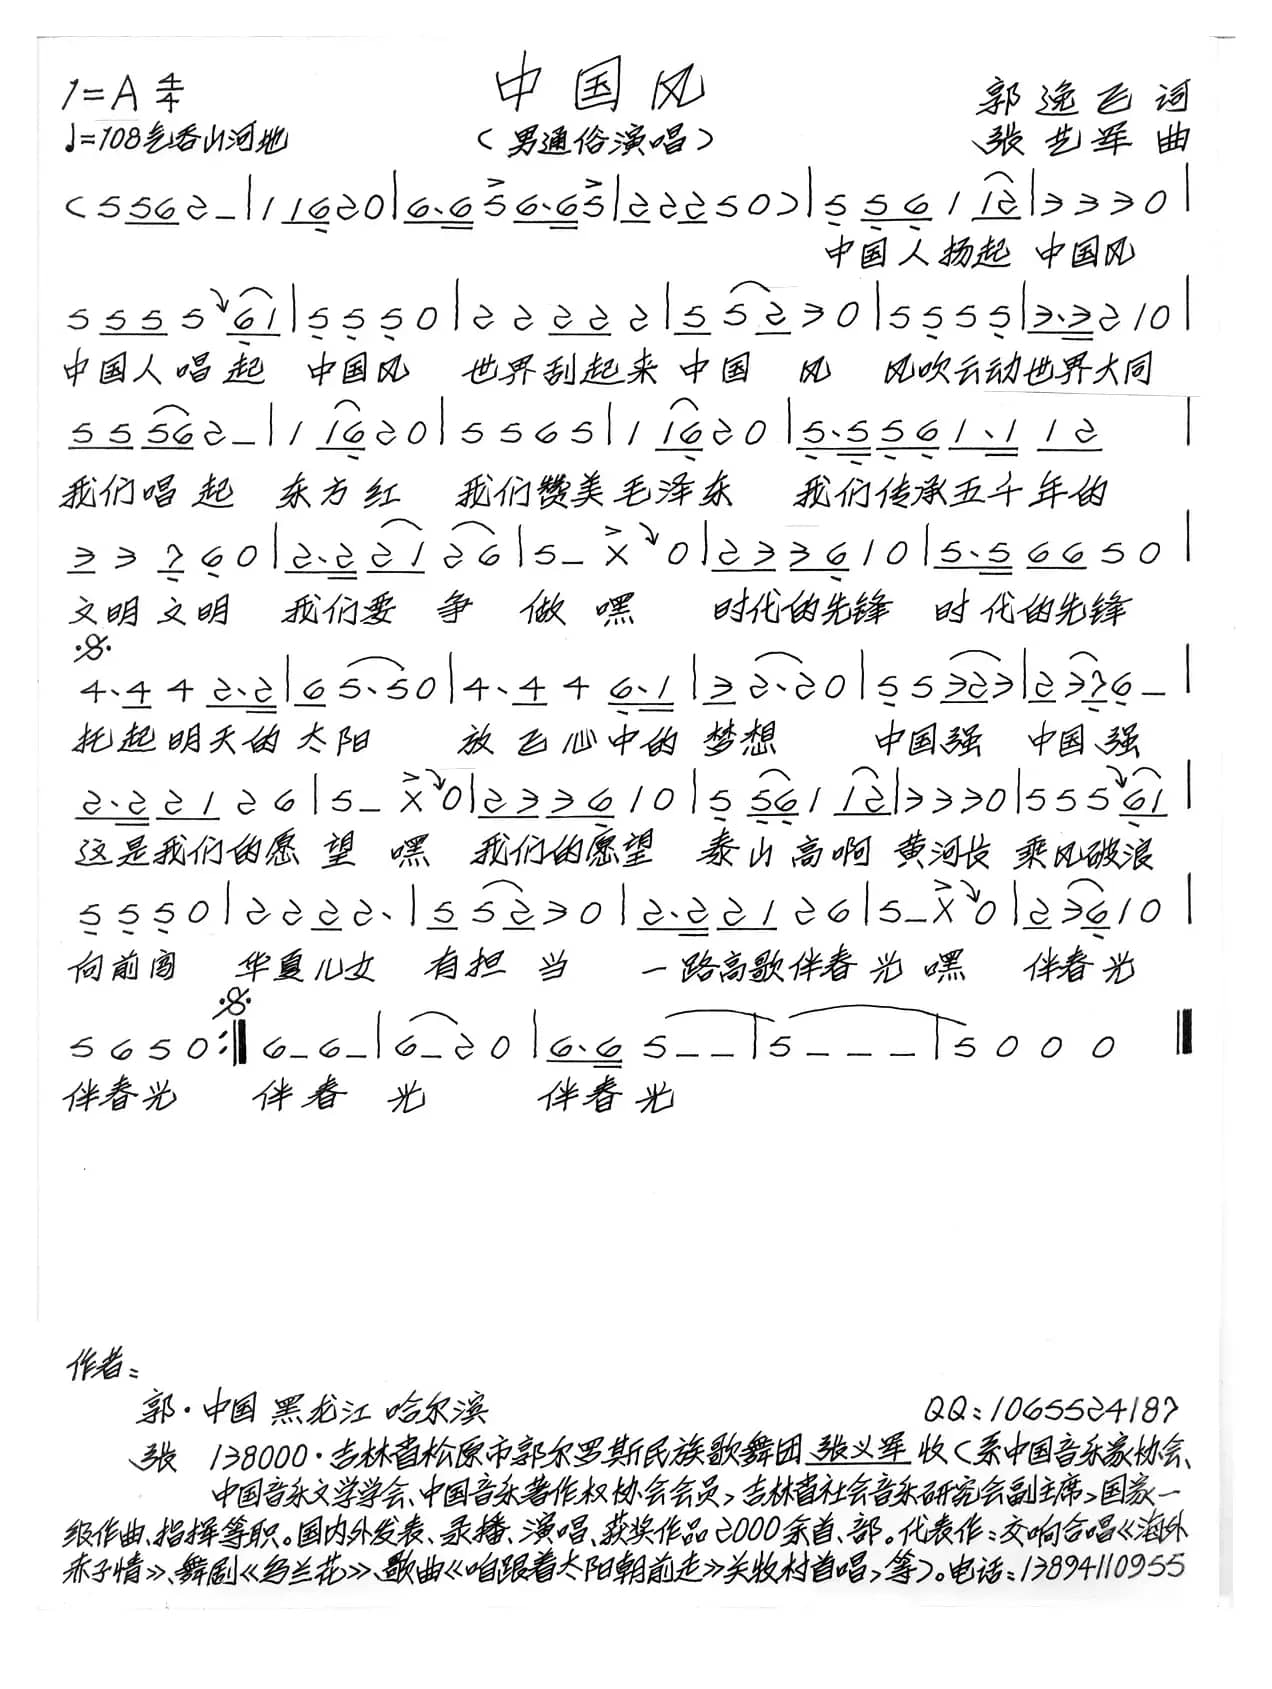 中国风
1=A 4/4
♩=108气吞山河地
（男通俗演唱）
郭逸飞词
张艺军曲
(5 5 6 2 _ | 1 1 6 2 0 | 6·6 5 6·6 5 | 2 2 2 5 0 ) | 5 5 6 1 1 2 | 3 3 3 0 |
中国人扬起 中国风
5 5 5 5 6 1 | 5 5 5 0 | 2 2 2 2 2 | 5 5 2 3 0 | 5 5 5 5 | 3·3 2 1 0 |
中国人唱起 中国风 世界刮起来中国 风 风吹云动世界大同
5 5 5 6 2 _ | 1 1 6 2 0 | 5 5 6 5 | 1 1 6 2 0 | 5·5 5 6 1·1 1 2 |
我们唱起 东方红 我们赞美毛泽东 我们传承五千年的
3 3 7 6 0 | 2·2 2 1 2 6 | 5 _ X 0 | 2 3 3 6 1 0 | 5·5 6 6 5 0 |
文明文明 我们要 争 做 嘿 时代的先锋 时代的先锋
4·4 4 2·2 | 6 5·5 0 | 4·4 4 6·1 | 3 2·2 0 | 5 5 3 2 3 | 2 3 7 6 _ |
托起明天的太阳 放飞心中的梦想 中国强 中国强
2·2 2 1 2 6 | 5 _ X 0 | 2 3 3 6 1 0 | 5 5 6 1 1 2 | 3 3 3 0 | 5 5 5 6 1 |
这是我们的愿望 嘿 我们的愿望 泰山高啊 黄河长 乘风破浪
5 5 5 0 | 2 2 2 2· | 5 5 2 3 0 | 2·2 2 1 2 6 | 5 _ X 0 | 2 3 6 1 0 |
向前闯 华夏儿女 有担当 一路高歌伴春光嘿 伴春光
5 6 5 0 :‖ 6 _ 6 _ | 6 _ 2 0 | 6·6 5 _ _ | 5 _ _ _ | 5 0 0 0 ‖
伴春光 伴春 光 伴春光
作者：
郭·中国 黑龙江 哈尔滨 QQ：1065524187
张 138000·吉林省松原市郭尔罗斯民族歌舞团张义军收（系中国音乐家协会、
中国音乐文学学会、中国音乐著作权协会会员，吉林省社会音乐研究会副主席，国家一
级作曲、指挥等职。国内外发表、录播、演唱、获奖作品2000余首、部。代表作：交响合唱《海外
赤子情》、舞剧《乌兰花》、歌曲《咱跟着太阳朝前走》关牧村首唱，等）。电话：13894110955